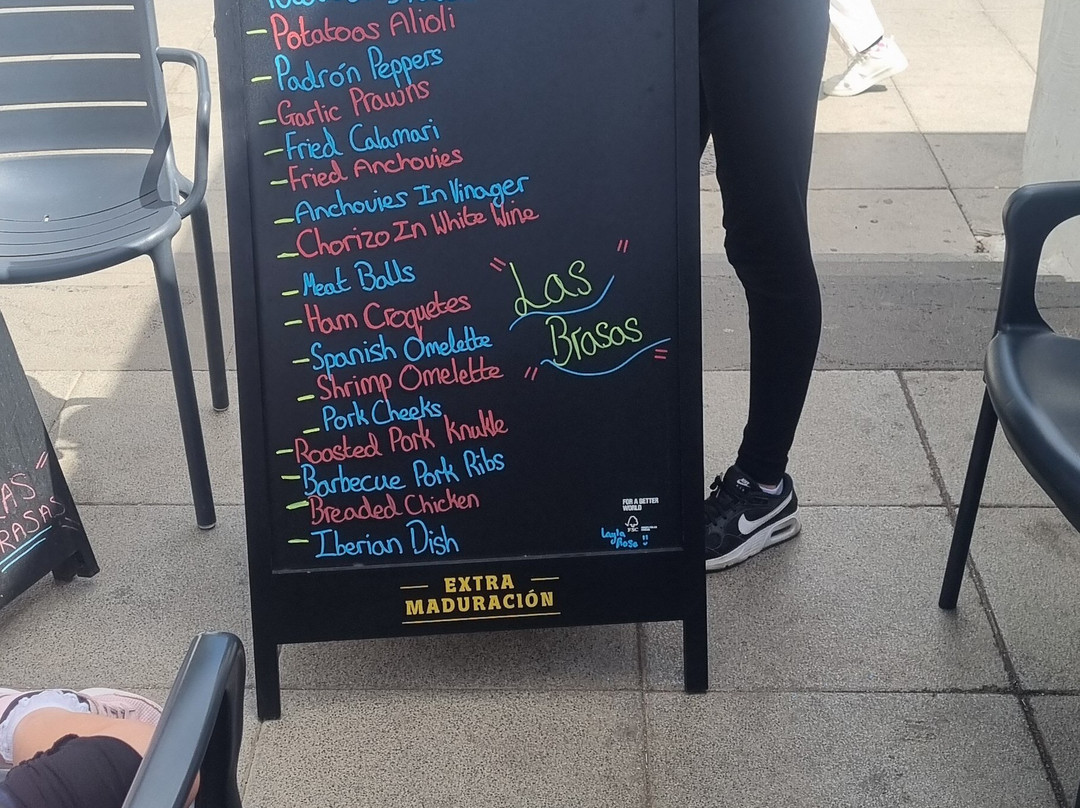 Potatoos Alioli
Padrón Peppers
Garlic Prawns
Fried Calamari
Fried Anchovies
Anchovies In Vinager
Chorizo In White Wine
Meat Balls
Ham Croquetes
Spanish Omelette
Shrimp Omelette
Pork Cheeks
Roasted Pork Knukle
Barbecue Pork Ribs
Breaded Chicken
Iberian Dish
"Las
Brasas"
FOR A BETTER
WORLD
FSC
Layla
Rose
EXTRA
MADURACIÓN